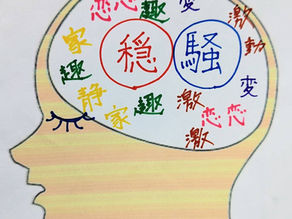 恋 恋 趣 変 激
家 穏 騒 動
趣 変
静 家 趣 激 恋 恋
激